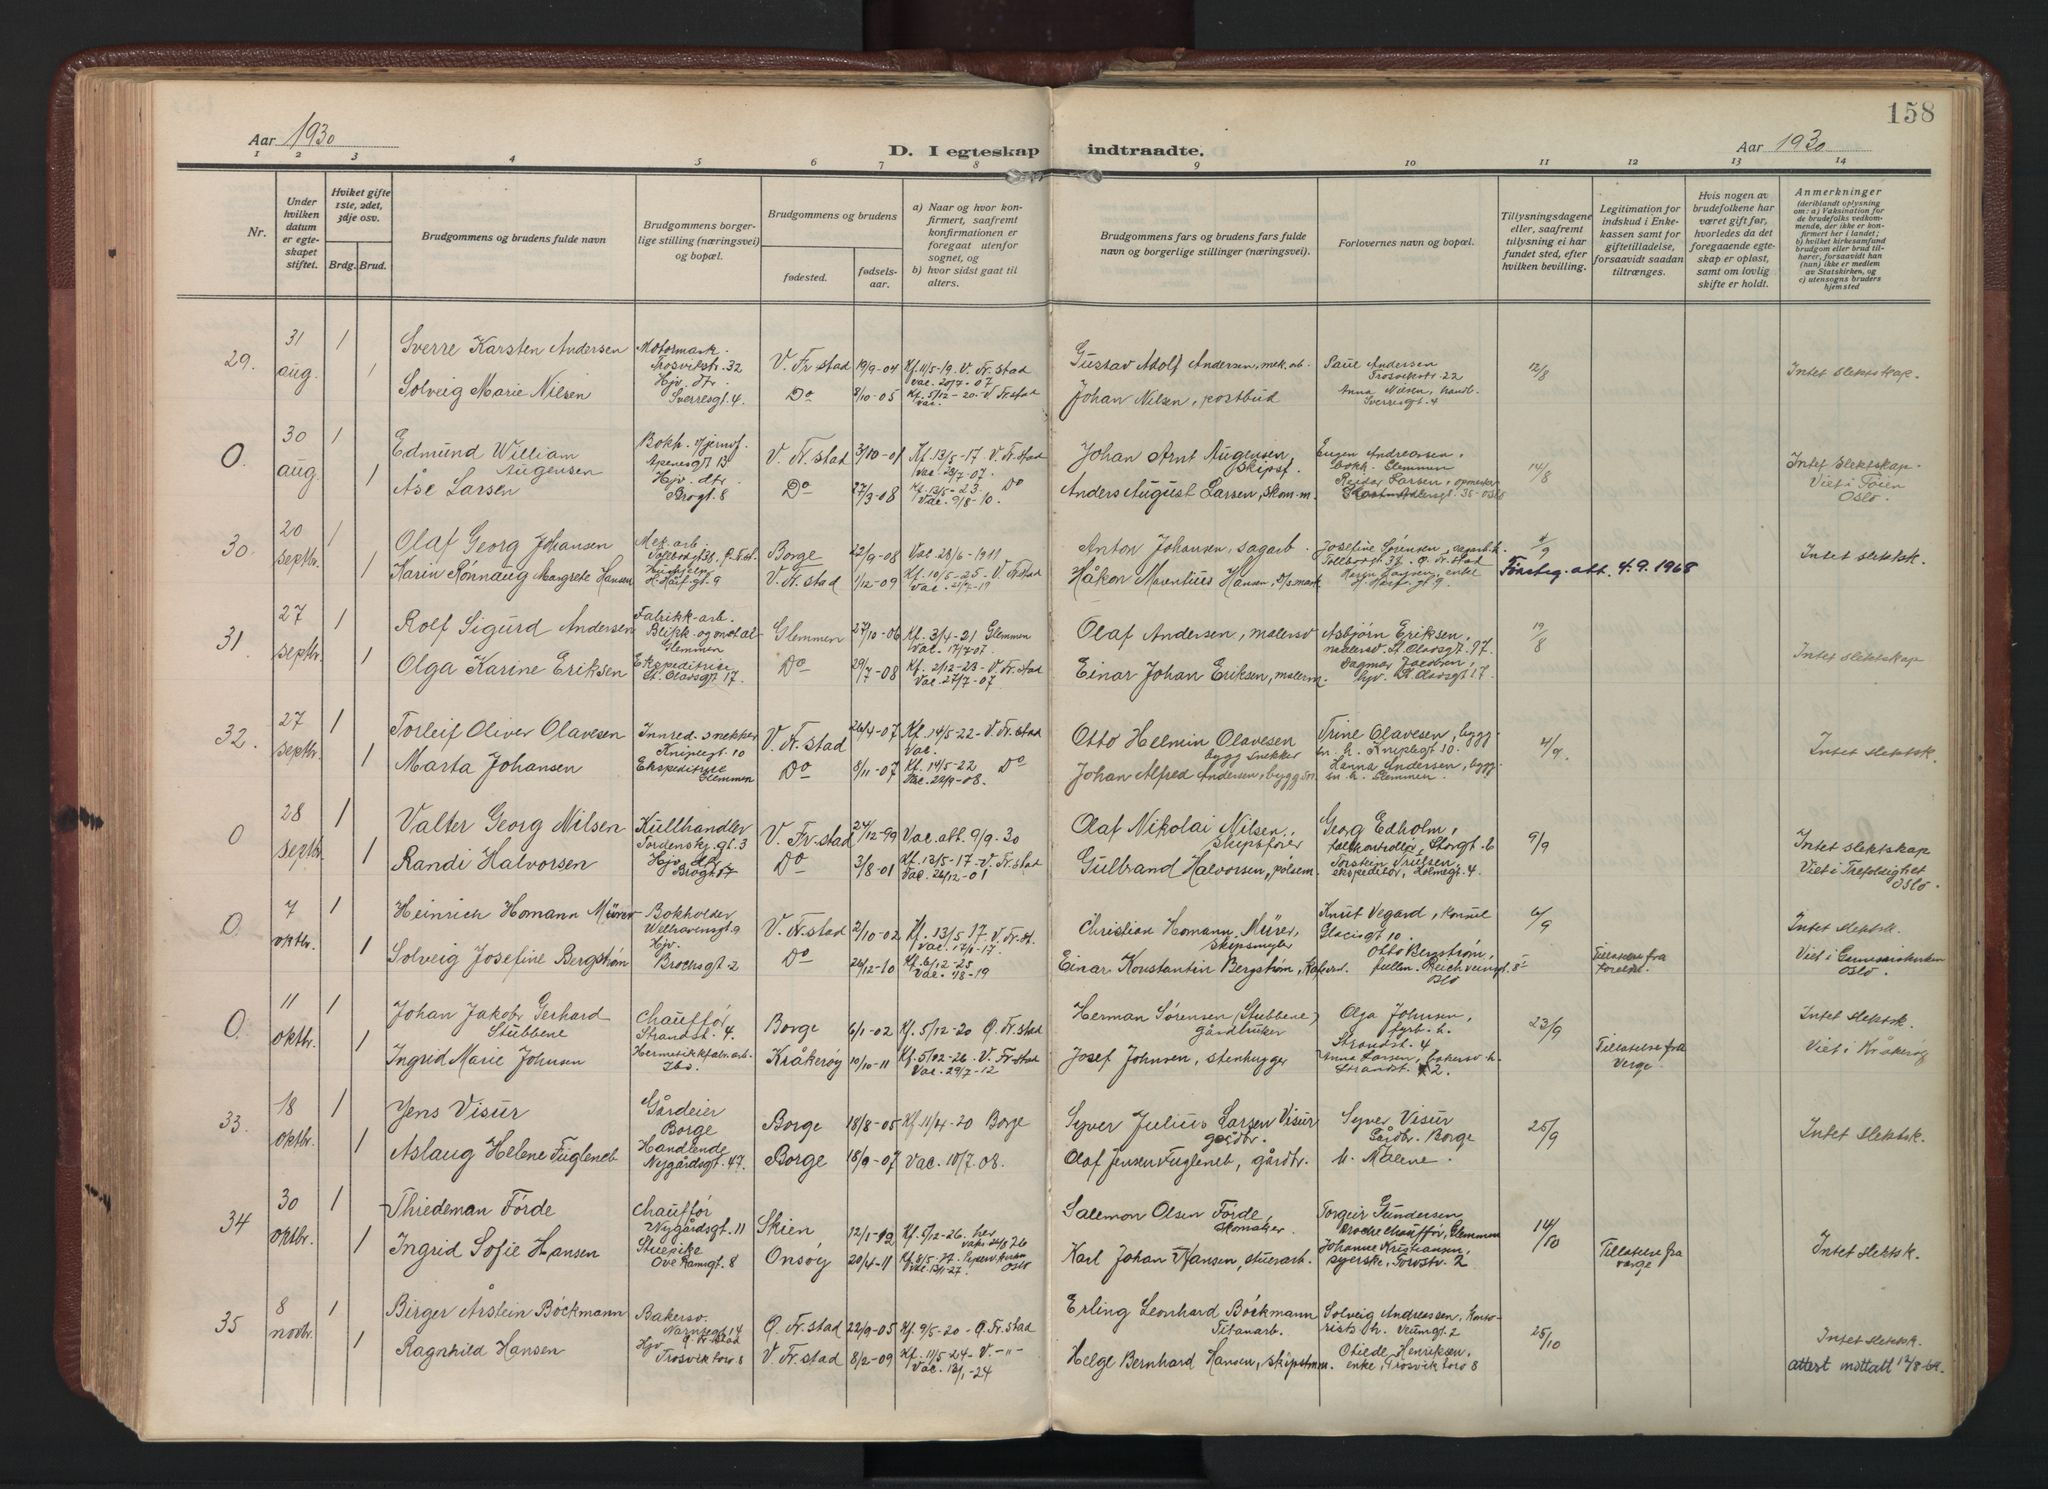 158
Aar 1930
D. I egteskap indtraadte.
Aar 1930
1 2 3 4 5 6 7 8 9 10 11 12 13 14
Nr.
Under hvilken datum er egteskapet stiftet.
Hvilket gifte 1ste, 2det, 3dje osv.
Brdg. Brud.
Brudgommens og brudens fulde navn
Brudgommens borgerlige stilling (næringsvei) og bopæl.
Brudgommens og brudens
fødested. fødselsaar.
a) Naar og hvor konfirmert, saafremt konfirmationen er foregaat utenfor sognet, og
b) hvor sidst gaat til alters.
Brudgommens fars og brudens fars fulde navn og borgerlige stillinger (næringsvei).
Forlovernes navn og bopæl.
Tillysningsdagene eller, saafremt tillysning ei har fundet sted, efter hvilken bevilling.
Legitimation for indskud i Enkekassen samt for giftetilladelse, forsaavidt saadan tiltrænges.
Hvis nogen av brudefolkene har været gift før, hvorledes da det foregaaende egteskap er opløst, samt om lovlig skifte er holdt.
Anmerkninger (deriblandt oplysning om: a) Vaksination for de brudefolks vedkommende, der ikke er konfirmert her i landet; b) hvilket kirkesamfund brudgom eller brud tilhører, forsaavidt han (hun) ikke er medlem av Statskirken, og c) utensogns bruders hjemsted
29. 31 aug. 1 Sverre Karsten Andersen Motormask. Trosvikstr. 32 V. Fr.stad 19/9-04 Kf. 11/5-19. V. Fr.stad Vac. 20/7-07 Gustav Adolf Andersen, mek. arb. Paul Andersen Trosvikstr. 22 12/8
1 Solveig Marie Nilsen Hjv. dtr. Sverresgt. 4. Do 8/10-05 Kf. 5/12-20-V. Fr.stad Vac. Johan Nilsen, postbud Anna Nilsen, handl. Sverresgt. 4 Intet slektskap.
0. 30 aug. 1 Edmund William Augensen Bokh. Apenesgt 13 V. Fr.stad 3/10-01 Kf. 13/5-17. V. Fr.stad Vac. 28/7-07. Johan Arnt Augensen, skipsf. Eugen Andreassen, bokh. Glemmen 14/8
1 Åse Larsen Hjv. dtr. Brogt. 8 Do 27/3-08 Kf. 13/5-23 Do Vac. 9/8-10. Anders August Larsen, skom.m. Reidar Larsen, Oslo Intet slektskap. Viet i Tøien Oslo.
30. 20 septbr. 1 Olaf Georg Johansen Mek. arb. Tollbodgt 38, Ø. Fr.st. Borge 22/9-08 Vac. 28/6-1911 Anton Johansen, sagarb. Josefine Sørensen, sagarb. h. Tollbodgt 38. Ø. Fr.stad 4/9
1 Karin Rönnaug Margrete Hansen H. Hårf.gt 9 V. Fr.stad 1/12-09 Kf. 10/5-25 - V. Fr.stad Vac. 21/7-19 Håkon Mauritius Hansen, D/S mask. enke H. Hårf. gt. 9 Tønsbg. att. 4.9.1968 Intet slektsk.
31. 27 septbr. 1 Rolf Sigurd Andersen Fabrikk-arb. Blikk- og metal- Glemmen Glemmen 27/10-06 Kf. 3/4-21 Glemmen Vac. 17/7-07. Olaf Andersen, malersv Asbjørn Eriksen, malersv. St. Olavsgt. 17. 19/8
1 Olga Karine Eriksen Ekspeditrise St. Olavsgt 17. Do 29/7-08 Kf. 2/12-23- V. Fr.stad Vac. 27/7-07 Einar Johan Eriksen, malerm. Dagmar Jacobsen, hjv. St. Olavsgt 17. Intet slektskap
32. 27 septbr. 1 Torleif Oliver Olavesen Innred. snekker Kniplegt 10 V. Fr. stad 26/4-07 Kf. 14/5-22- V. Fr.stad Vac. Otto Helmin Olavesen bygg snekker Trine Olavesen, byggsn. h. Kniplegt 10. 4/9.
1 Marta Johansen Ekspeditrise Glemmen Do 8/11-07 Kf. 14/5-22 Do Vac. 22/9-08. Johan Alfred Andersen, byggsn. Hanna Andersen, byggsn h. Glemmen. Intet slektsk.
0 28 septbr. 1 Valter Georg Nilsen Kullhandler Tordenskj. gt. 3 V. Fr.stad 24/12-99 Vac. att. 9/9. 30 Olaf Nikolai Nilsen, skipsfører Georg Edholm, tollkontrollør, Storgt. 6 9/9
1 Randi Halvorsen Hjv. dtr Brogt 17 Do 3/8-01 Kf. 13/5-17- V. Fr.stad Vac. 26/12-01 Gulbrand Halvorsen, pølsem. Torstein Trulsen, ekspeditør, Holmegt. 4. Intet slektskap Viet i Trefoldighet Oslo.
0. 7 oktbr. 1 Heinrich Homann Mürer Bokholder Welhavensgt 9 V. Fr.stad 2/10-02 Kf. 13/5 17. V. Fr.st. Vac. Christian Homann Mürer, skipsmegler Knut Vegard, konsul Glacisgt 10. 6/9
1 Solveig Josefine Bergstrøm Hjv. Brochsgt. 2 Do 26/12-10 Kf. 6/12-25 Vac. 1/8-19 Einar Konstantin Bergstrøm, Otto Bergstrøm, fullm. Oslo Tillatelse fra foreldre Intet slektsk. Viet i Oslo.
0. 11 oktbr. 1 Johan Jakob Gerhard Stubbene Chauffør Strandst. 4. Borge 6/1-02 Kf. 5/12-20 Ø. Fr.stad Herman Sørensen (Stubbene) gårdbruker Olga Johnsen, fyrb. h. Strandst. 4 23/9
1 Ingrid Marie Johnsen Hermetikkfabr. arb. Ibd. Kråkerøy 10/10-11 Kf. 5/12-26. V. Fr.stad Vac. 29/7-12 Josef Johnsen, stenhugger Anna Larsen, bakersv. h. Strandst. 2. Tillatelse fra verge Intet slektsk. Viet i Kråkerøy
33. 18 oktbr. 1 Jens Visur Gårdeier Borge Borge 18/8-05 Kf. 11/4-20 Borge Syver Julius Larsen Visur gårdbr. Syver Visur Gårdbr. Borge 25/9
1 Aslaug Helene Fugleneb Handlende Nygårdsgt. 47. Borge 18/9-07 Vac. 10/7.08. Olaf Jensen Fugleneb, gårdbr. h. Malene. Intet slektsk.
34 30 oktbr. 1 Thiedeman Förde Chauffør Nygårdsgt. 11 Skien 12/1-02 Kf. 5/12-26. her Salemon Olsen Förde, skomaker. Torgeir Gundersen Chauffør, Glemmen 14/10
1 Ingrid Sofie Hansen Stuepike Ove Ramsgt. 8 Onsøy 20/4-11 Kf. Oslo Karl Johan Hansen, stuerarb. Johanne Kristiansen, syerske, Tordstr. 2 Tillatelse fra verge Intet slektsk.
35 8 novbr. 1 Birger Årstein Böckmann Bakersv. Ø. Fr.stad Ø. Fr.stad 22/9-05 Kf. 9/5-20- Ø. Fr.stad Erling Leonhard Böckmann Titanarb. Solveig Andreassen, kontorists h. Veumgt. 2 25/10
1 Ragnhild Hansen Hjv Trosvik torv 8 V. Fr.stad 8/2-09 Kf. 11/5-24- V. -"- Vac. 13/1-24 Helge Bernhard Hansen, skipstmm. Otiede Henriksen, enke, Trosvik torv 8 Intet slektsk. attest mottatt 12/8-64.